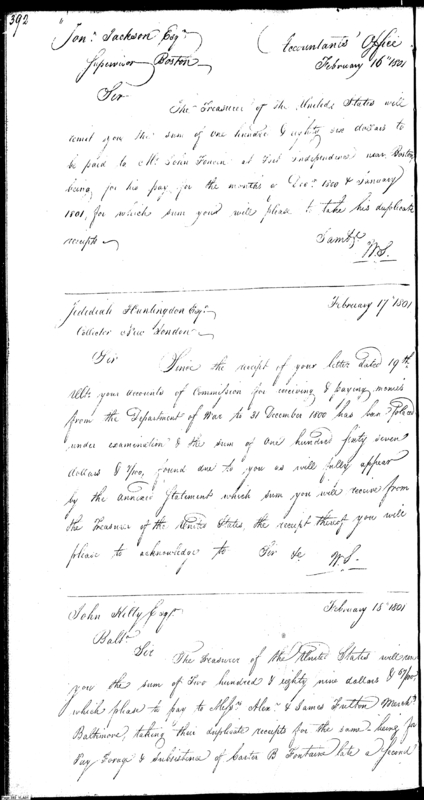 392
Jonn. Jackson Esqr.
Supervisor Boston
Accountants Office
February 16th 1801
Sir
The Treasurer of the United States will
remit you the sum of one hundred & eighty one dollars to
be paid to Mr. John Foncin at Fort Independence near Boston
being for his pay for the months of Decr. 1800 & January
1801, for which sum you will please to take his duplicate
receipts
I am &c.
W.S.
Jedediah Huntingdon Esqr.
Collector New London
February 17th 1801
Sir Since the receipt of your letter dated 19th
Ulto. your accounts of Commission for receiving & paying monies
from the Department of War to 31 December 1800 has been
under examination & the sum of One hundred fifty seven
dollars & /100, found due to you as will fully appear
by the annexed Statement which sum you will receive from
the Treasurer of the United States, the receipt thereof you will
please to acknowledge to Sir &c
W.S.
John Kilty Esqr.
Balto.
February 18th 1801
Sir The Treasurer of the United States will
you the sum of Two hundred & eighty nine dollars & 67/100,
which please to pay to Messrs. Alexr. & James Fulton March.
Baltimore taking their duplicate receipts for the same being for
Pay Forage & Subsistence of Carter B Fontaine late a Second